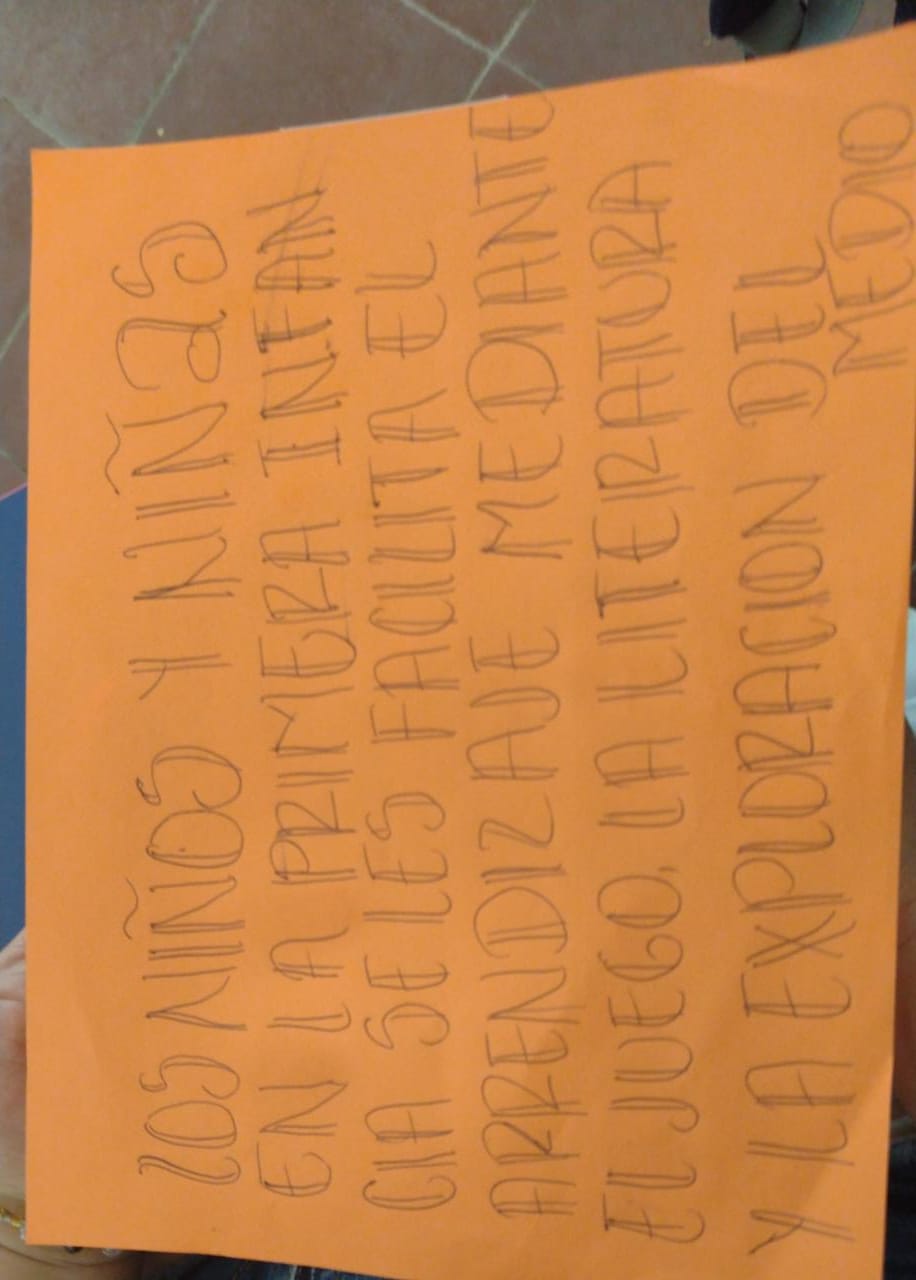 LOS NIÑOS Y NIÑaS
EN LA PRIMERA INFAN
CIA SE LES FACILITA EL
APRENDIZAJE MEDIANTE
EL JUEGO, LA LITERATURA
Y LA EXPLORACION DEL
MEDIO